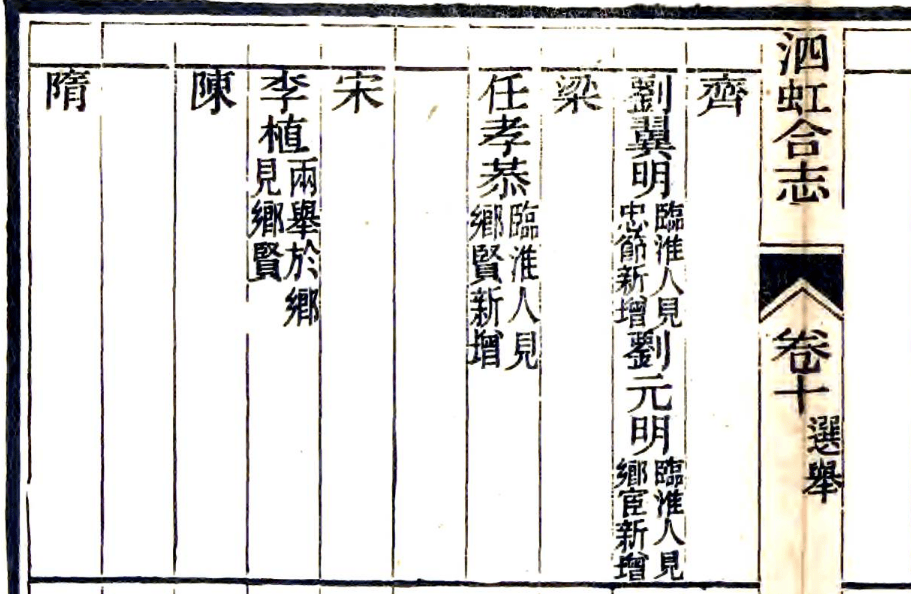 泗虹合志
卷十
選舉
齊
劉翼明臨淮人見忠節新增劉元明臨淮人見鄉宦新增
梁
任孝恭臨淮人見鄉賢新增
宋
李植兩舉於鄉見鄉賢
陳
隋